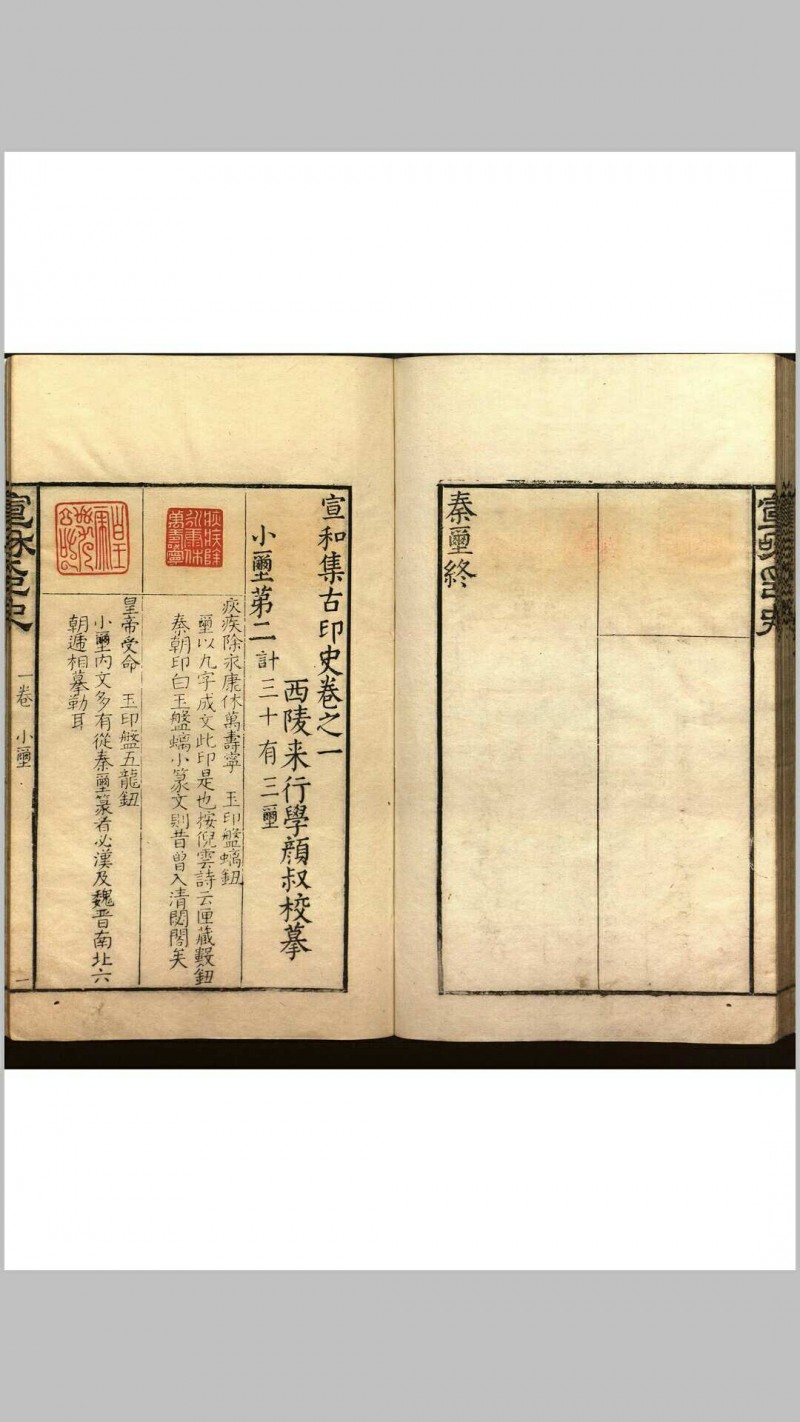 秦璽終
宣和集古印史卷之一
西陵来行學顔叔校摹
小璽第二計三十有三璽
疢疾除永康休萬壽寧　玉印盤螭鈕
璽以九字成文此印是也按倪雲詩云匣藏數鈕
秦朝印白玉盤螭小篆文則昔曾入清閟閣矣
皇帝受命　玉印盤五龍鈕
小璽内文多有從秦璽篆者必漢及魏晋南北六
朝遞相摹勒耳
疢疾除
永康休
萬壽寧
一卷　小璽
一